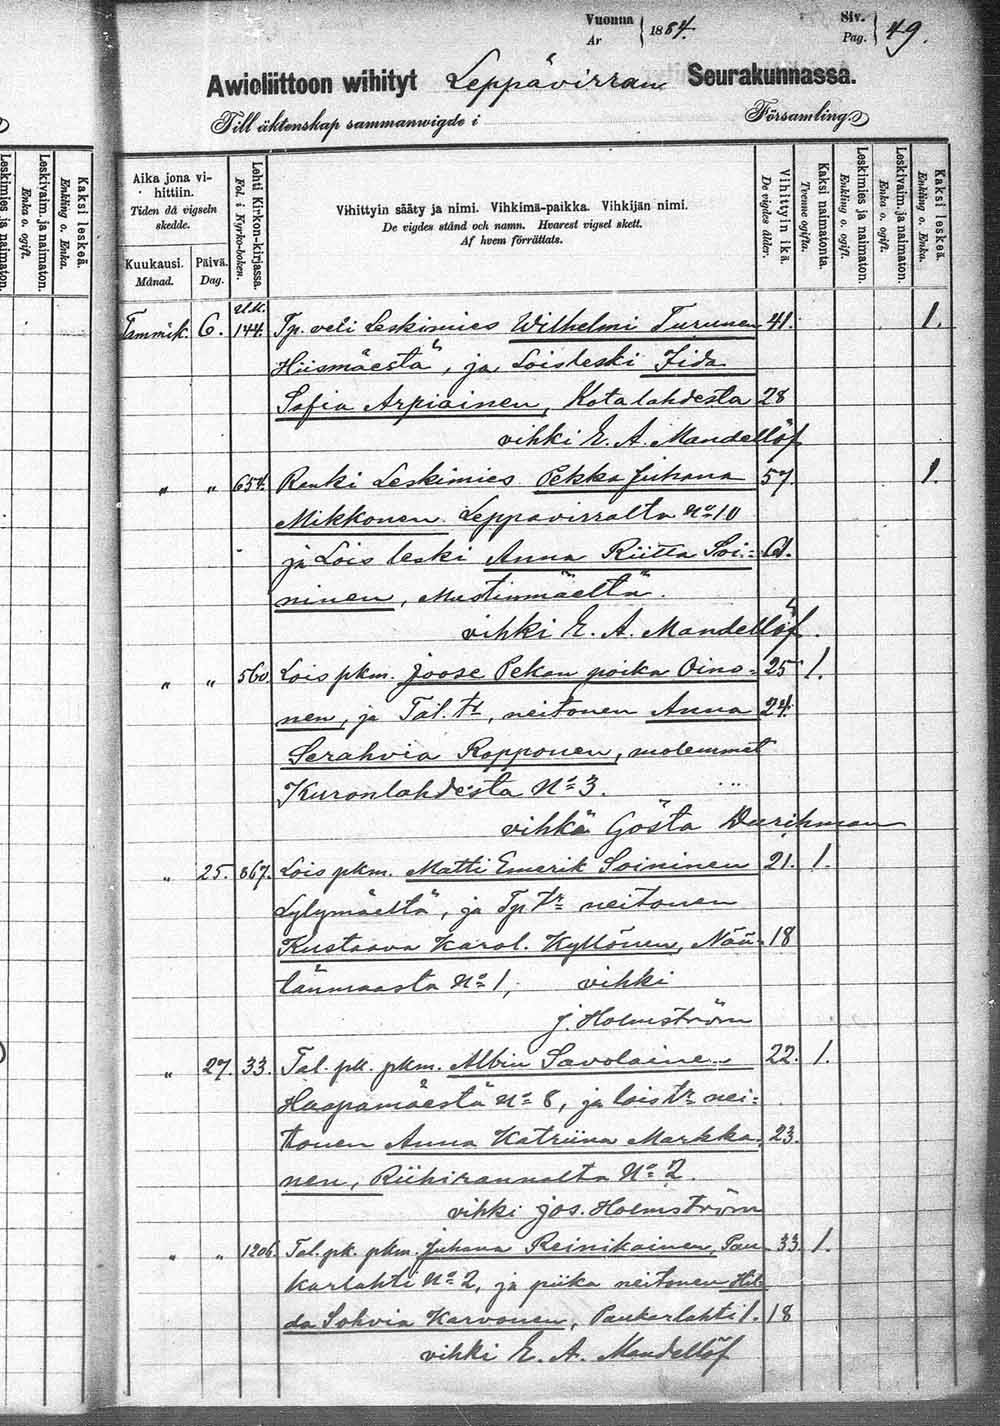 Vuonna Ar } 1884. Siv. Pag. } 49.
Awioliittoon wihityt Leppävirran Seurakunnassa.
Till äktenskap sammanwigde i Församling.
Aika jona vi-
hittiin.
Tiden då vigseln
skedde.
Kuukausi.
Månad.
Päivä.
Dag.
Lehti Kirkon-kirjassa.
Fol. i Kyrko-boken.
Vihittyin sääty ja nimi. Vihkimä-paikka. Vihkijän nimi.
De vigdes stånd och namn. Hvarest vigsel skett.
Af hvem förrättats.
Vihittyin ikä.
De vigdes ålder.
Kaksi naimatonta.
Tvenne ogifta.
Leskimies ja naimaton.
Enkling o. ogift.
Leskivaim. ja naimaton.
Enka o. ogift.
Kaksi leskeä.
Enkling o. Enka.
Tammik. 6. 144. Tp. veli Leskimies Wilhelmi Turunen 41. 1.
Hiismäestä, ja Loisleski Iida
Sofia Arpiainen, Kotalahdesta 28
vihki E. A. Mandellöf
" " 654. Renki Leskimies Pekka Juhana 57 1.
Mikkonen Leppävirralta No 10
ja Lois leski Anna Riitta Soi-
ninen, Mustinmäeltä.
vihki E. A. Mandellöf.
" " 560. Lois pkm. Joose Pekan poika Oino- 25 1.
nen, ja Tal. tr, neitonen Anna 24.
Serahvia Ropponen, molemmat
Kuronlahdesta No 3.
vihkä Gösta
" 25. 867. Lois pkm. Matti Emerik Soininen 21. 1.
Lylymäeltä, ja Tp. tr neitonen
Kustaava Karol. Kyllönen, Nää- 18
tänmaasta No 1, vihki
J. Holmström
" 27. 33. Tal. pk. pkm. Albin Savolainen 22. 1.
Haapamäestä No 8, ja lois tr nei-
tonen Anna Katriina Markka- 23.
nen, Riihirannalta No 2.
vihki Jos. Holmström
" " 1206. Tal. pk. pkm. Juhana Reinikainen, Pau- 33. 1.
karlahti No 2, ja piika neitonen Hil-
da Sohvia Karvonen, Paukarlahti 1. 18
vihki E. A. Mandellöf